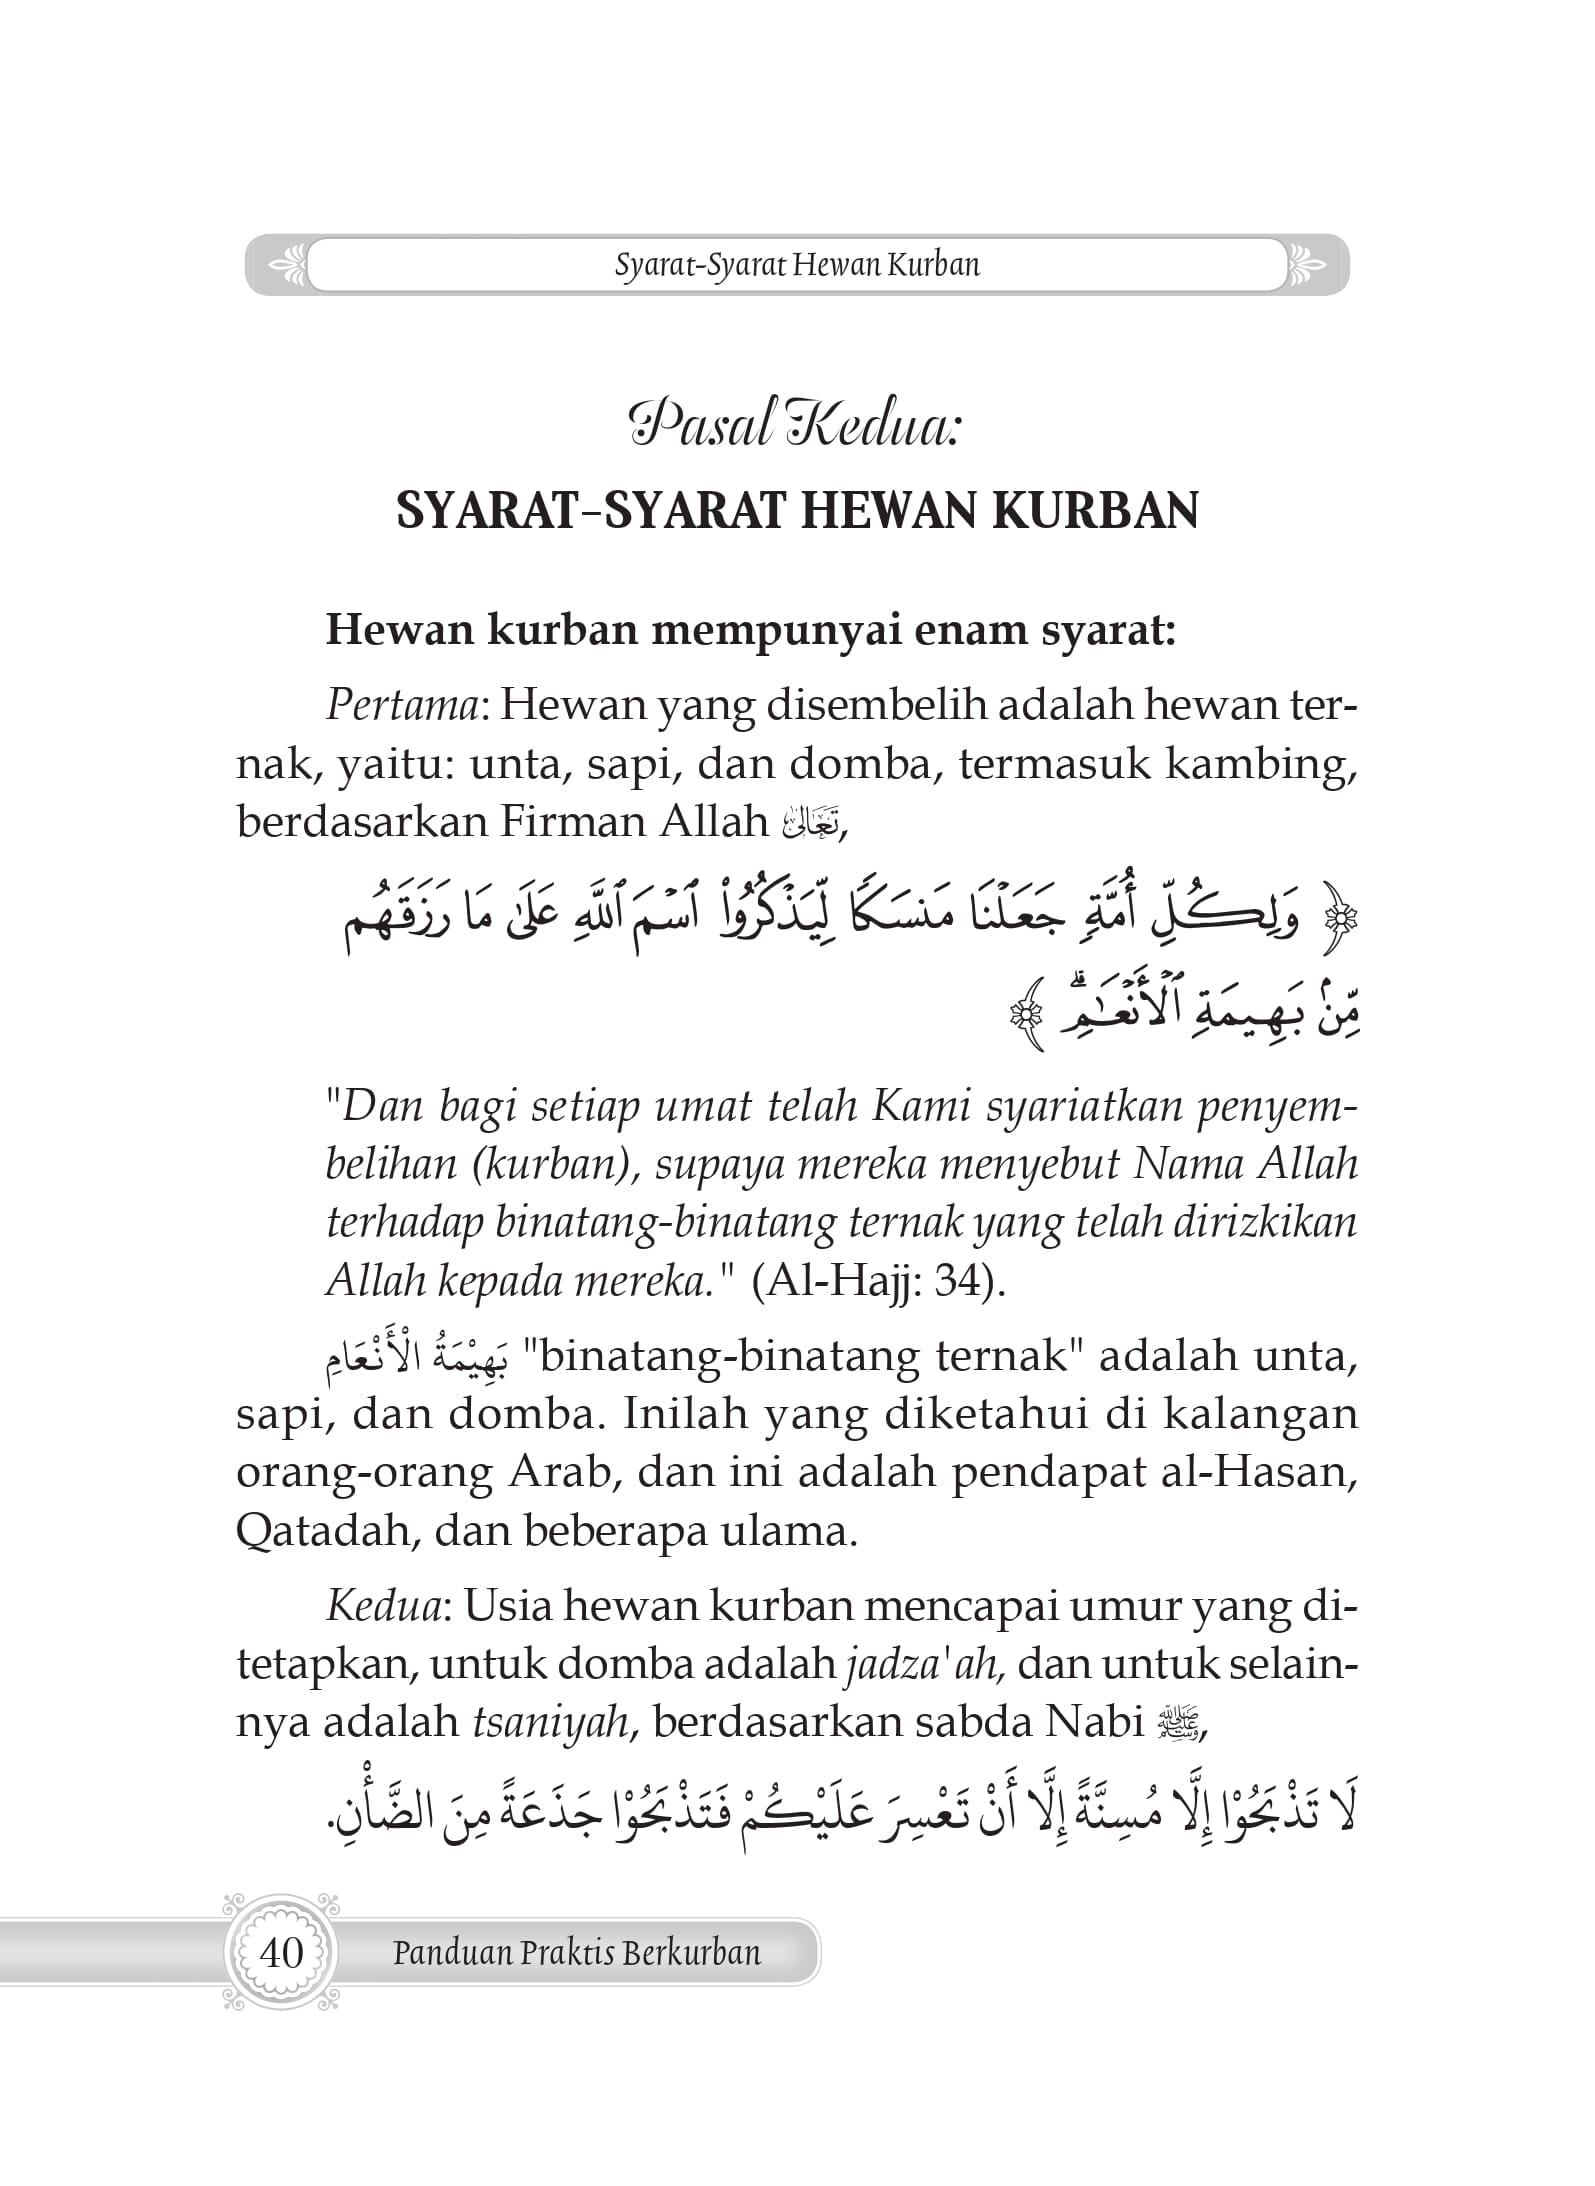 Syarat-Syarat Hewan Kurban
Pasal Kedua:
SYARAT-SYARAT HEWAN KURBAN
Hewan kurban mempunyai enam syarat:
Pertama: Hewan yang disembelih adalah hewan ter-
nak, yaitu: unta, sapi, dan domba, termasuk kambing,
berdasarkan Firman Allah تَعَالَى,
﴿ وَلِكُلِّ أُمَّةٍ جَعَلْنَا مَنسَكًا لِّيَذْكُرُوا۟ ٱسْمَ ٱللَّهِ عَلَىٰ مَا رَزَقَهُم
مِّنۢ بَهِيمَةِ ٱلْأَنْعَـٰمِ ۗ ﴾
"Dan bagi setiap umat telah Kami syariatkan penyem-
belihan (kurban), supaya mereka menyebut Nama Allah
terhadap binatang-binatang ternak yang telah dirizkikan
Allah kepada mereka." (Al-Hajj: 34).
بَهِيْمَةُ الْأَنْعَامِ "binatang-binatang ternak" adalah unta,
sapi, dan domba. Inilah yang diketahui di kalangan
orang-orang Arab, dan ini adalah pendapat al-Hasan,
Qatadah, dan beberapa ulama.
Kedua: Usia hewan kurban mencapai umur yang di-
tetapkan, untuk domba adalah jadza'ah, dan untuk selain-
nya adalah tsaniyah, berdasarkan sabda Nabi ﷺ,
لَا تَذْبَحُوْا إِلَّا مُسِنَّةً إِلَّا أَنْ تَعْسِرَ عَلَيْكُمْ فَتَذْبَحُوْا جَذَعَةً مِنَ الضَّأْنِ.
40 Panduan Praktis Berkurban